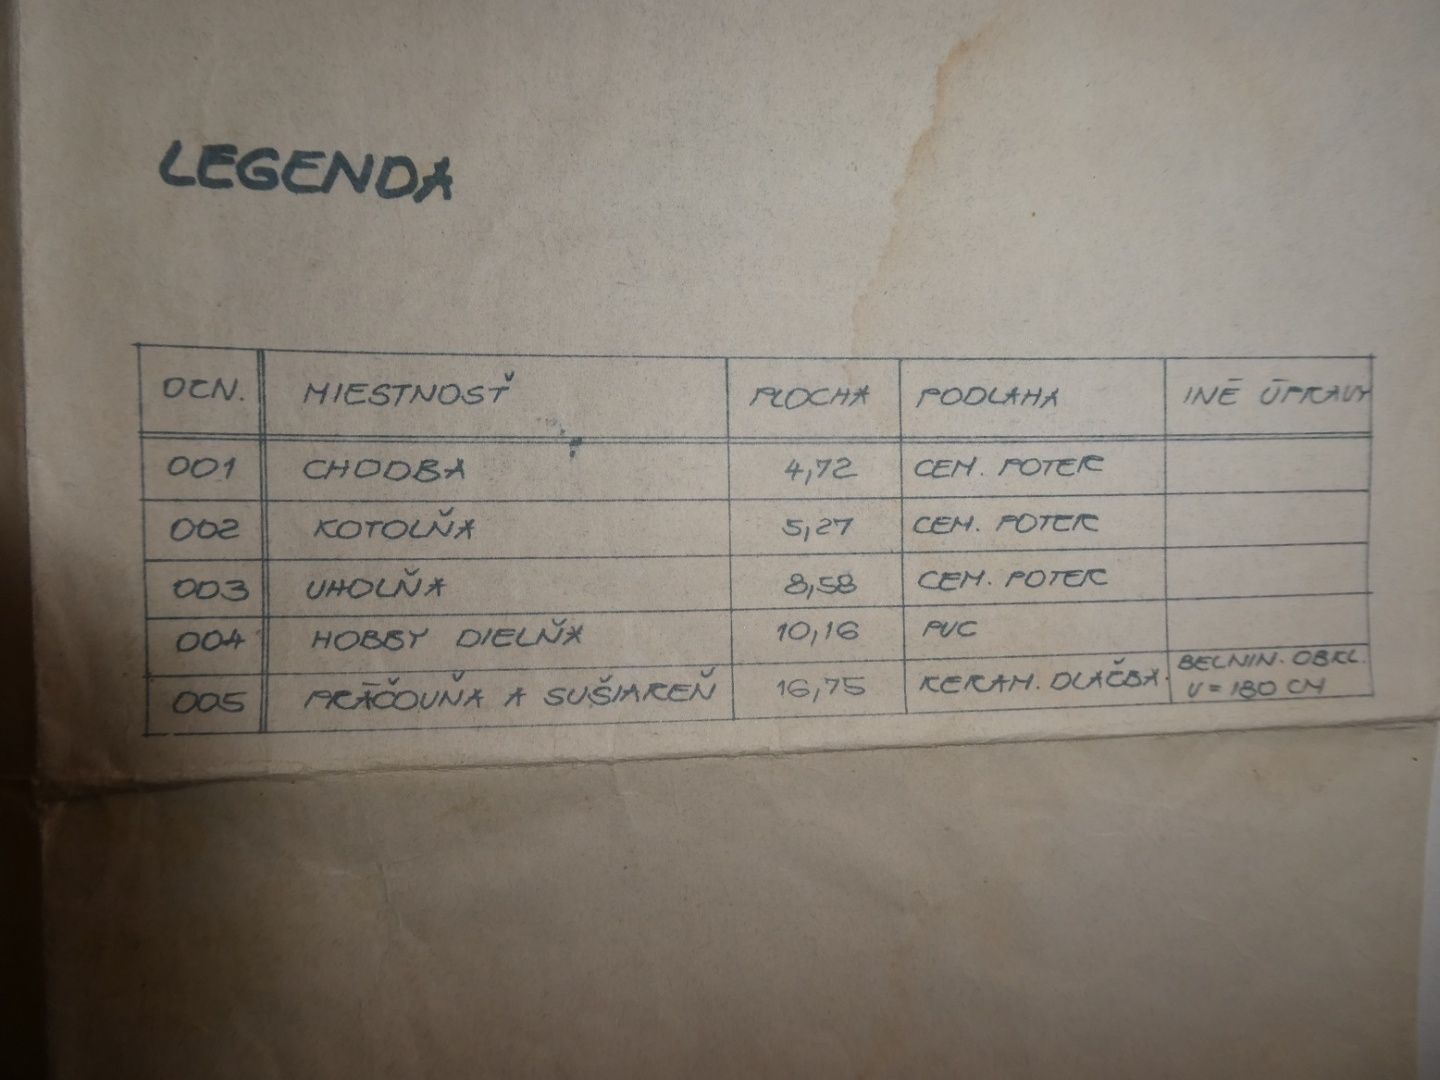 LEGENDA
OZN. MIESTNOSŤ PLOCHA PODLAHA INÉ ÚPRAVY
001 CHODBA 4,72 CEM. POTER
002 KOTOLŇA 5,27 CEM. POTER
003 UHOLŇA 8,58 CEM. POTER
004 HOBBY DIELŇA 10,16 PVC
005 PRÁČOVŇA A SUŠIAREŇ 16,75 KERAM. DLAČBA. BELNIN. OBKL.
V = 180 CM